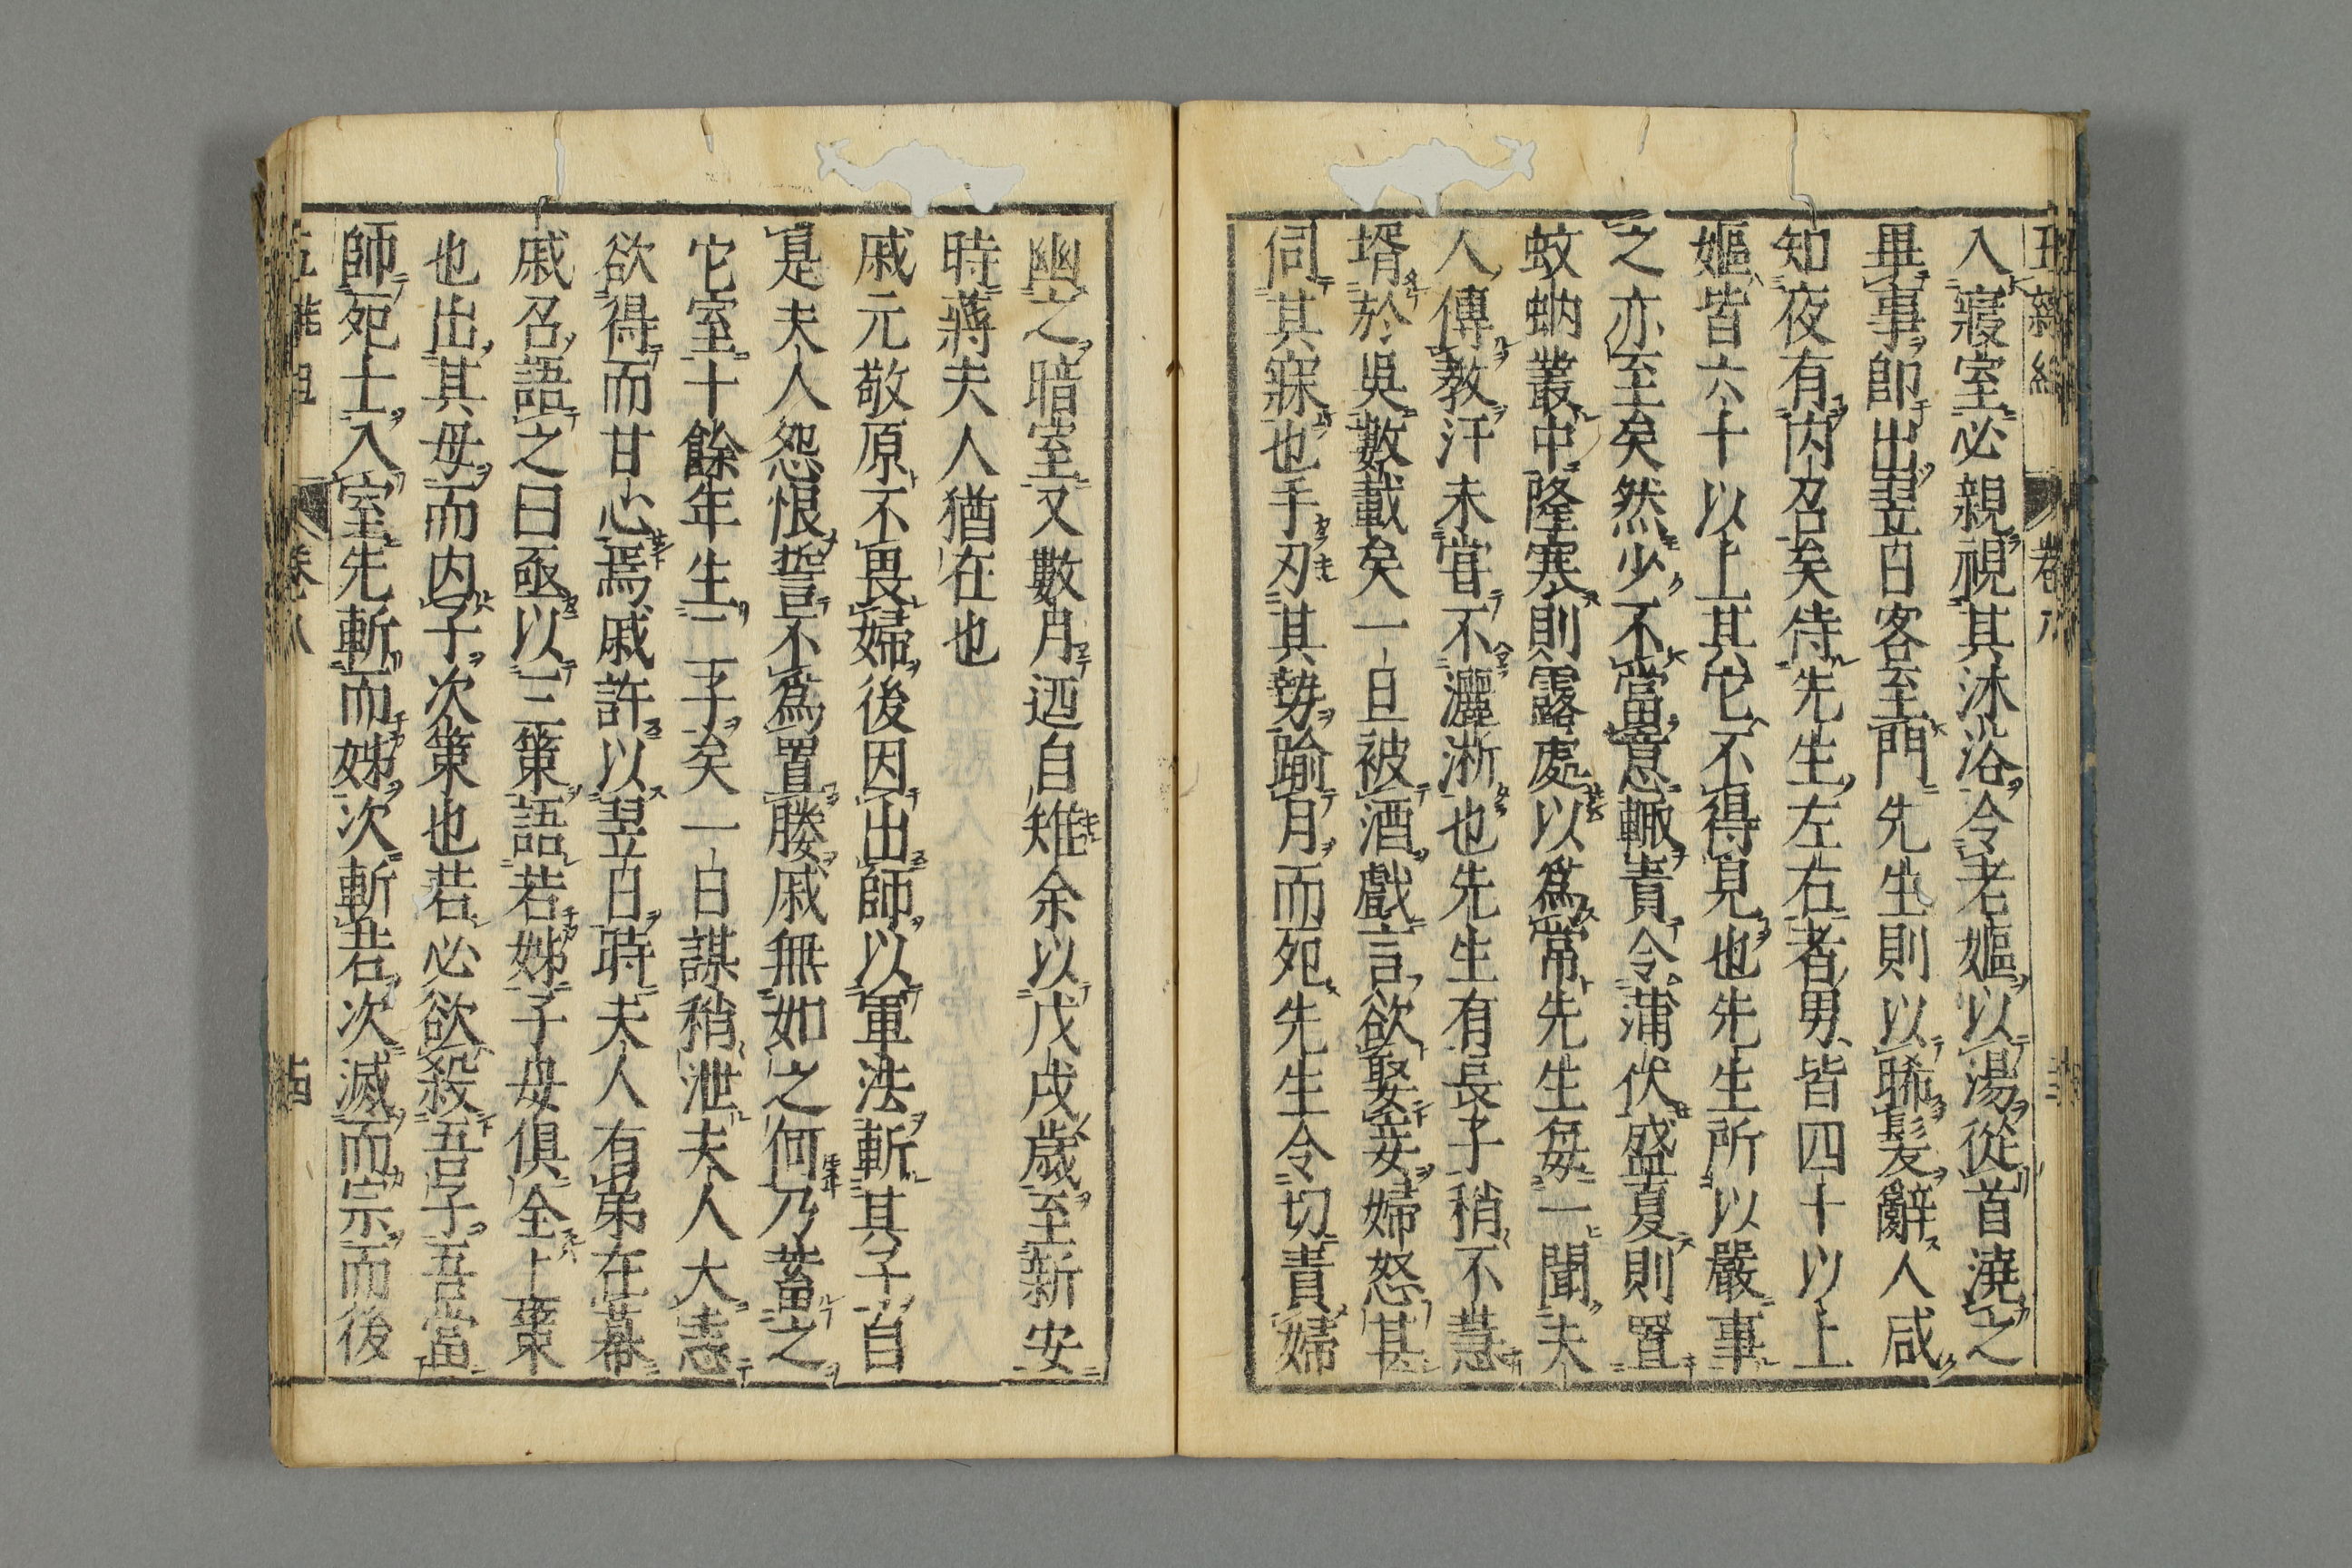 入寢室必親視其沐浴令老嫗以湯從首澆之
畢事卽出翌日客至門先生則以晞髮辭人咸
知夜有內召矣侍先生左右者男皆四十以上
嫗皆六十以上其它不得見也先生所以嚴事
之亦至矣然少不當意輙責令蒲伏盛夏則置
蚊蚋叢中隆寒則露處以爲常先生每一聞夫
人傳教汗未嘗不灑淅也先生有長子稍不慧
壻於吳數載矣一旦被酒戲言欲娶妾婦怒甚
伺其寐也手刃其勢踰月而死先生令切責婦
幽之暗室又數月迺自雉余以戊戌歲至新安
時蔣夫人猶在也
戚元敬原不畏婦後因出師以軍法斬其子自
是夫人怨恨誓不爲置媵戚無如之何乃蓄之
它室十餘年生二子矣一日謀稍泄夫人大恚
欲得而甘心焉戚許以翌日時夫人有弟在幕
戚召語之曰亟以三策語若姊子母俱全上策
也出其母而内子次策也若必欲殺吾子吾當
師死士入室先斬而姊次斬若次滅而宗而後
卷八